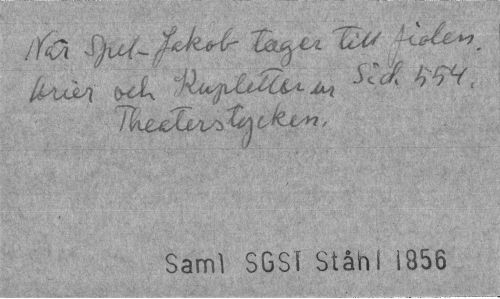 När Spel-Jakob tager till fiolen.
Arier och Kupletter ur Sid. 554.
Theaterstycken.
Saml SGST Ståhl 1856